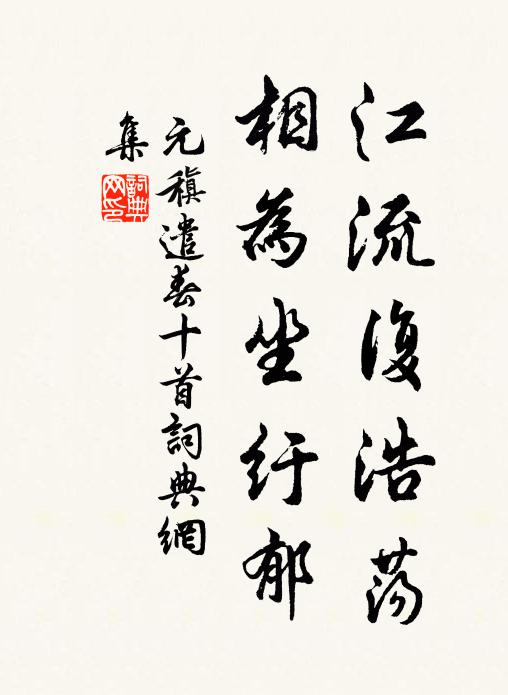 江流復浩蕩
相為坐紆郁
元稹遣春十首詞典網
集
詞典
网印